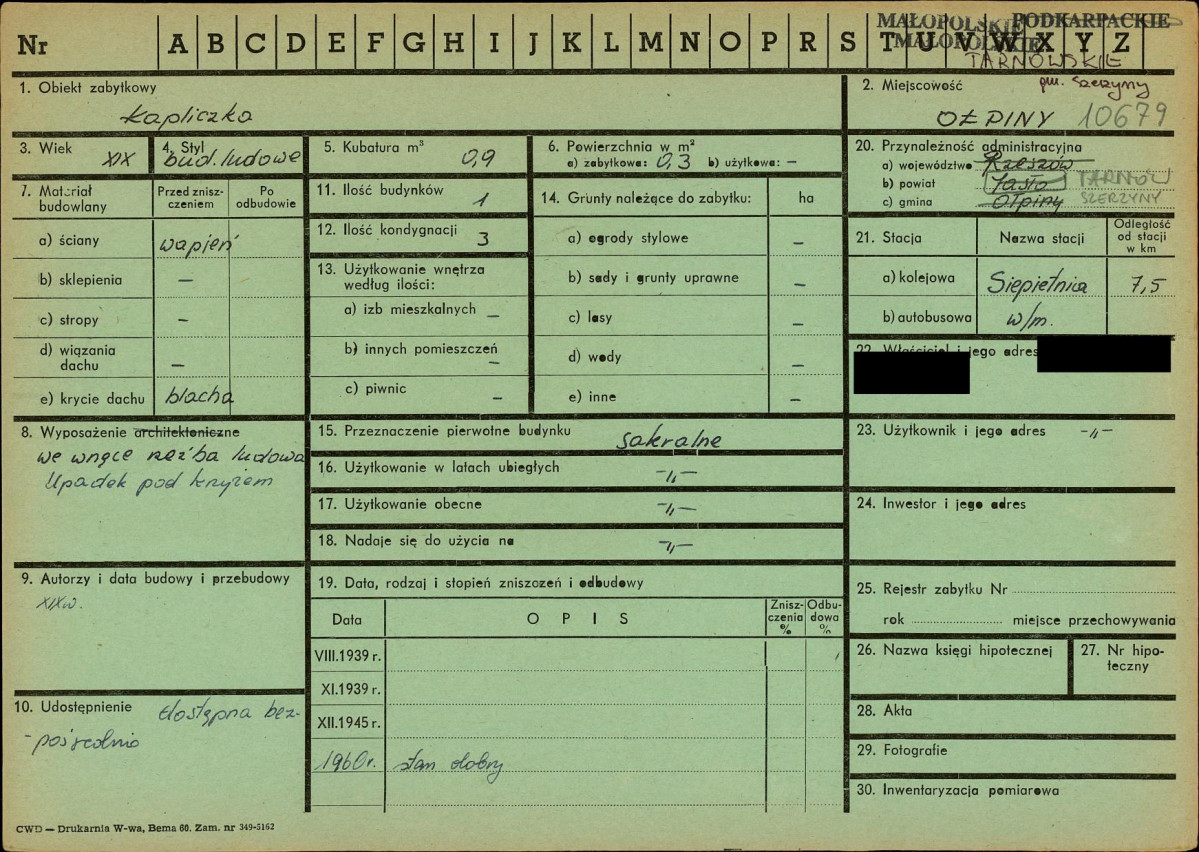 Nr A B C D E F G H I J K L M N O P R S T U V W X Y Z
MAŁOPOLSKIE PODKARPACKIE
MAŁOPOLSKIE
TARNOWSKIE
gm. Szerzyny
1. Obiekt zabytkowy
Kapliczka
2. Miejscowość
OŁPINY 10679
3. Wiek XIX
4. Styl bud. ludowe
5. Kubatura m³ 0,9
6. Powierzchnia w m²
a) zabytkowa: 0,3 b) użytkowa: –
20. Przynależność administracyjna
a) województwo Rzeszów
b) powiat Jasło TARNÓW
c) gmina Ołpiny SZERZYNY
7. Materiał budowlany
Przed zniszczeniem
Po odbudowie
a) ściany wapień
b) sklepienia –
c) stropy –
d) wiązania dachu –
e) krycie dachu blacha
11. Ilość budynków 1
12. Ilość kondygnacji 3
13. Użytkowanie wnętrza
według ilości:
a) izb mieszkalnych –
b) innych pomieszczeń –
c) piwnic –
14. Grunty należące do zabytku: ha
a) ogrody stylowe –
b) sady i grunty uprawne –
c) lasy –
d) wody –
e) inne –
21. Stacja Nazwa stacji Odległość od stacji w km
a) kolejowa Siepietnica 7,5
b) autobusowa w/m.
22. Właściciel i jego adres
8. Wyposażenie architektoniczne
we wnęce rzeźba ludowa
Upadek pod krzyżem
15. Przeznaczenie pierwotne budynku sakralne
16. Użytkowanie w latach ubiegłych –„–
17. Użytkowanie obecne –„–
18. Nadaje się do użycia na –„–
23. Użytkownik i jego adres –„–
24. Inwestor i jego adres
9. Autorzy i data budowy i przebudowy
XIXw.
19. Data, rodzaj i stopień zniszczeń i odbudowy
Data OPIS Zniszczenia % Odbudowa %
VIII.1939 r.
XI.1939 r.
XII.1945 r.
1960r. stan dobry
25. Rejestr zabytku Nr
rok miejsce przechowywania
26. Nazwa księgi hipotecznej
27. Nr hipoteczny
10. Udostępnienie dostępna bez-
-pośrednio
28. Akta
29. Fotografie
30. Inwentaryzacja pomiarowa
CWD — Drukarnia W-wa, Bema 60. Zam. nr 349-5162